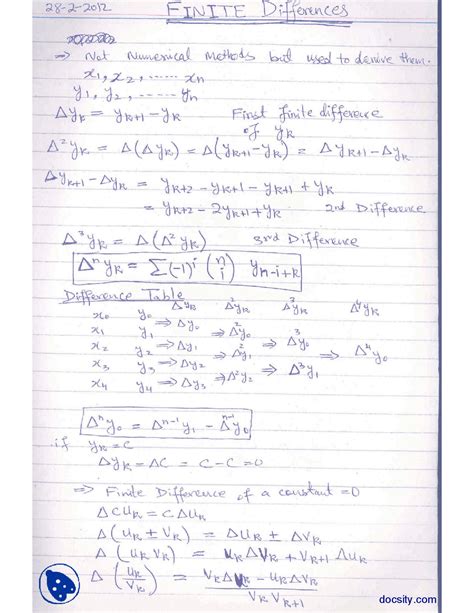 28-2-2012 FINITE Differences
⇒ Not Numerical Methods but used to derive them.
x₁, x₂, ...... xₙ
y₁, y₂, ...... yₙ
Δyₖ = yₖ₊₁ − yₖ First finite difference
of yₖ
Δ²yₖ = Δ(Δyₖ) = Δ(yₖ₊₁−yₖ) = Δyₖ₊₁−Δyₖ
Δyₖ₊₁−Δyₖ = yₖ₊₂ − yₖ₊₁ − yₖ₊₁ + yₖ
= yₖ₊₂ − 2yₖ₊₁ + yₖ 2nd Difference
Δ³yₖ = Δ(Δ²yₖ) 3rd Difference
Δⁿyₖ = Σ(−1)ⁱ (n i) yₙ₋ᵢ₊ₖ
Difference Table
Δyₖ Δ²yₖ Δ³yₖ Δ⁴yₖ
x₀ y₀
x₁ y₁ ⇒Δy₀ ⇒Δ²y₀
x₂ y₂ ⇒Δy₁ ⇒Δ²y₁ ⇒Δ³y₀ ⇒ Δ⁴y₀
x₃ y₃ ⇒Δy₂ ⇒Δ²y₂ ⇒ Δ³y₁
x₄ y₄ ⇒Δy₃
Δⁿy₀ = Δⁿ⁻¹y₁ − Δⁿ⁻¹y₀
if yₖ=C
Δyₖ = ΔC = C−C=0
⇒ Finite Difference of a constant =0
ΔCUₖ = CΔUₖ
Δ(Uₖ ± Vₖ) = ΔUₖ ± ΔVₖ
Δ(UₖVₖ) = UₖΔVₖ + Vₖ₊₁ΔUₖ
Δ(Uₖ/Vₖ) = (VₖΔUₖ − UₖΔVₖ)/(VₖVₖ₊₁)
docsity.com